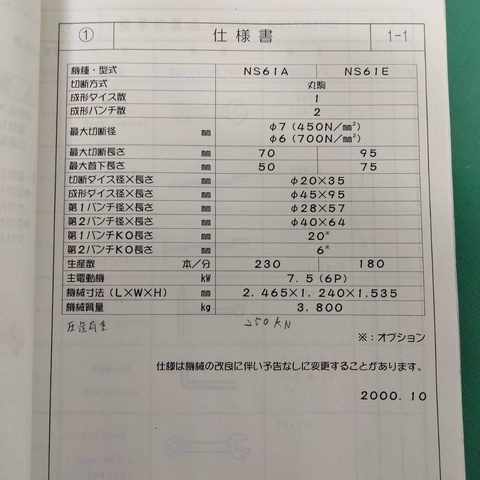 ① 仕様書 1-1
機種・型式 NS61A NS61E
切断方式 丸駒
成形ダイス数 1
成形パンチ数 2
最大切断径 mm φ7 (450N/mm²)
φ6 (700N/mm²)
最大切断長さ mm 70 95
最大首下長さ mm 50 75
切断ダイス径×長さ mm φ20×35
成形ダイス径×長さ mm φ45×95
第1パンチ径×長さ mm φ28×57
第2パンチ径×長さ mm φ40×64
第1パンチKO長さ mm 20※
第2パンチKO長さ mm 6※
生産数 本/分 230 180
主電動機 kW 7.5(6P)
機械寸法(L×W×H) mm 2.465×1.240×1.535
機械質量 kg 3.800
圧造荷重 250 KN
※:オプション
仕様は機械の改良に伴い予告なしに変更することがあります。
2000.10